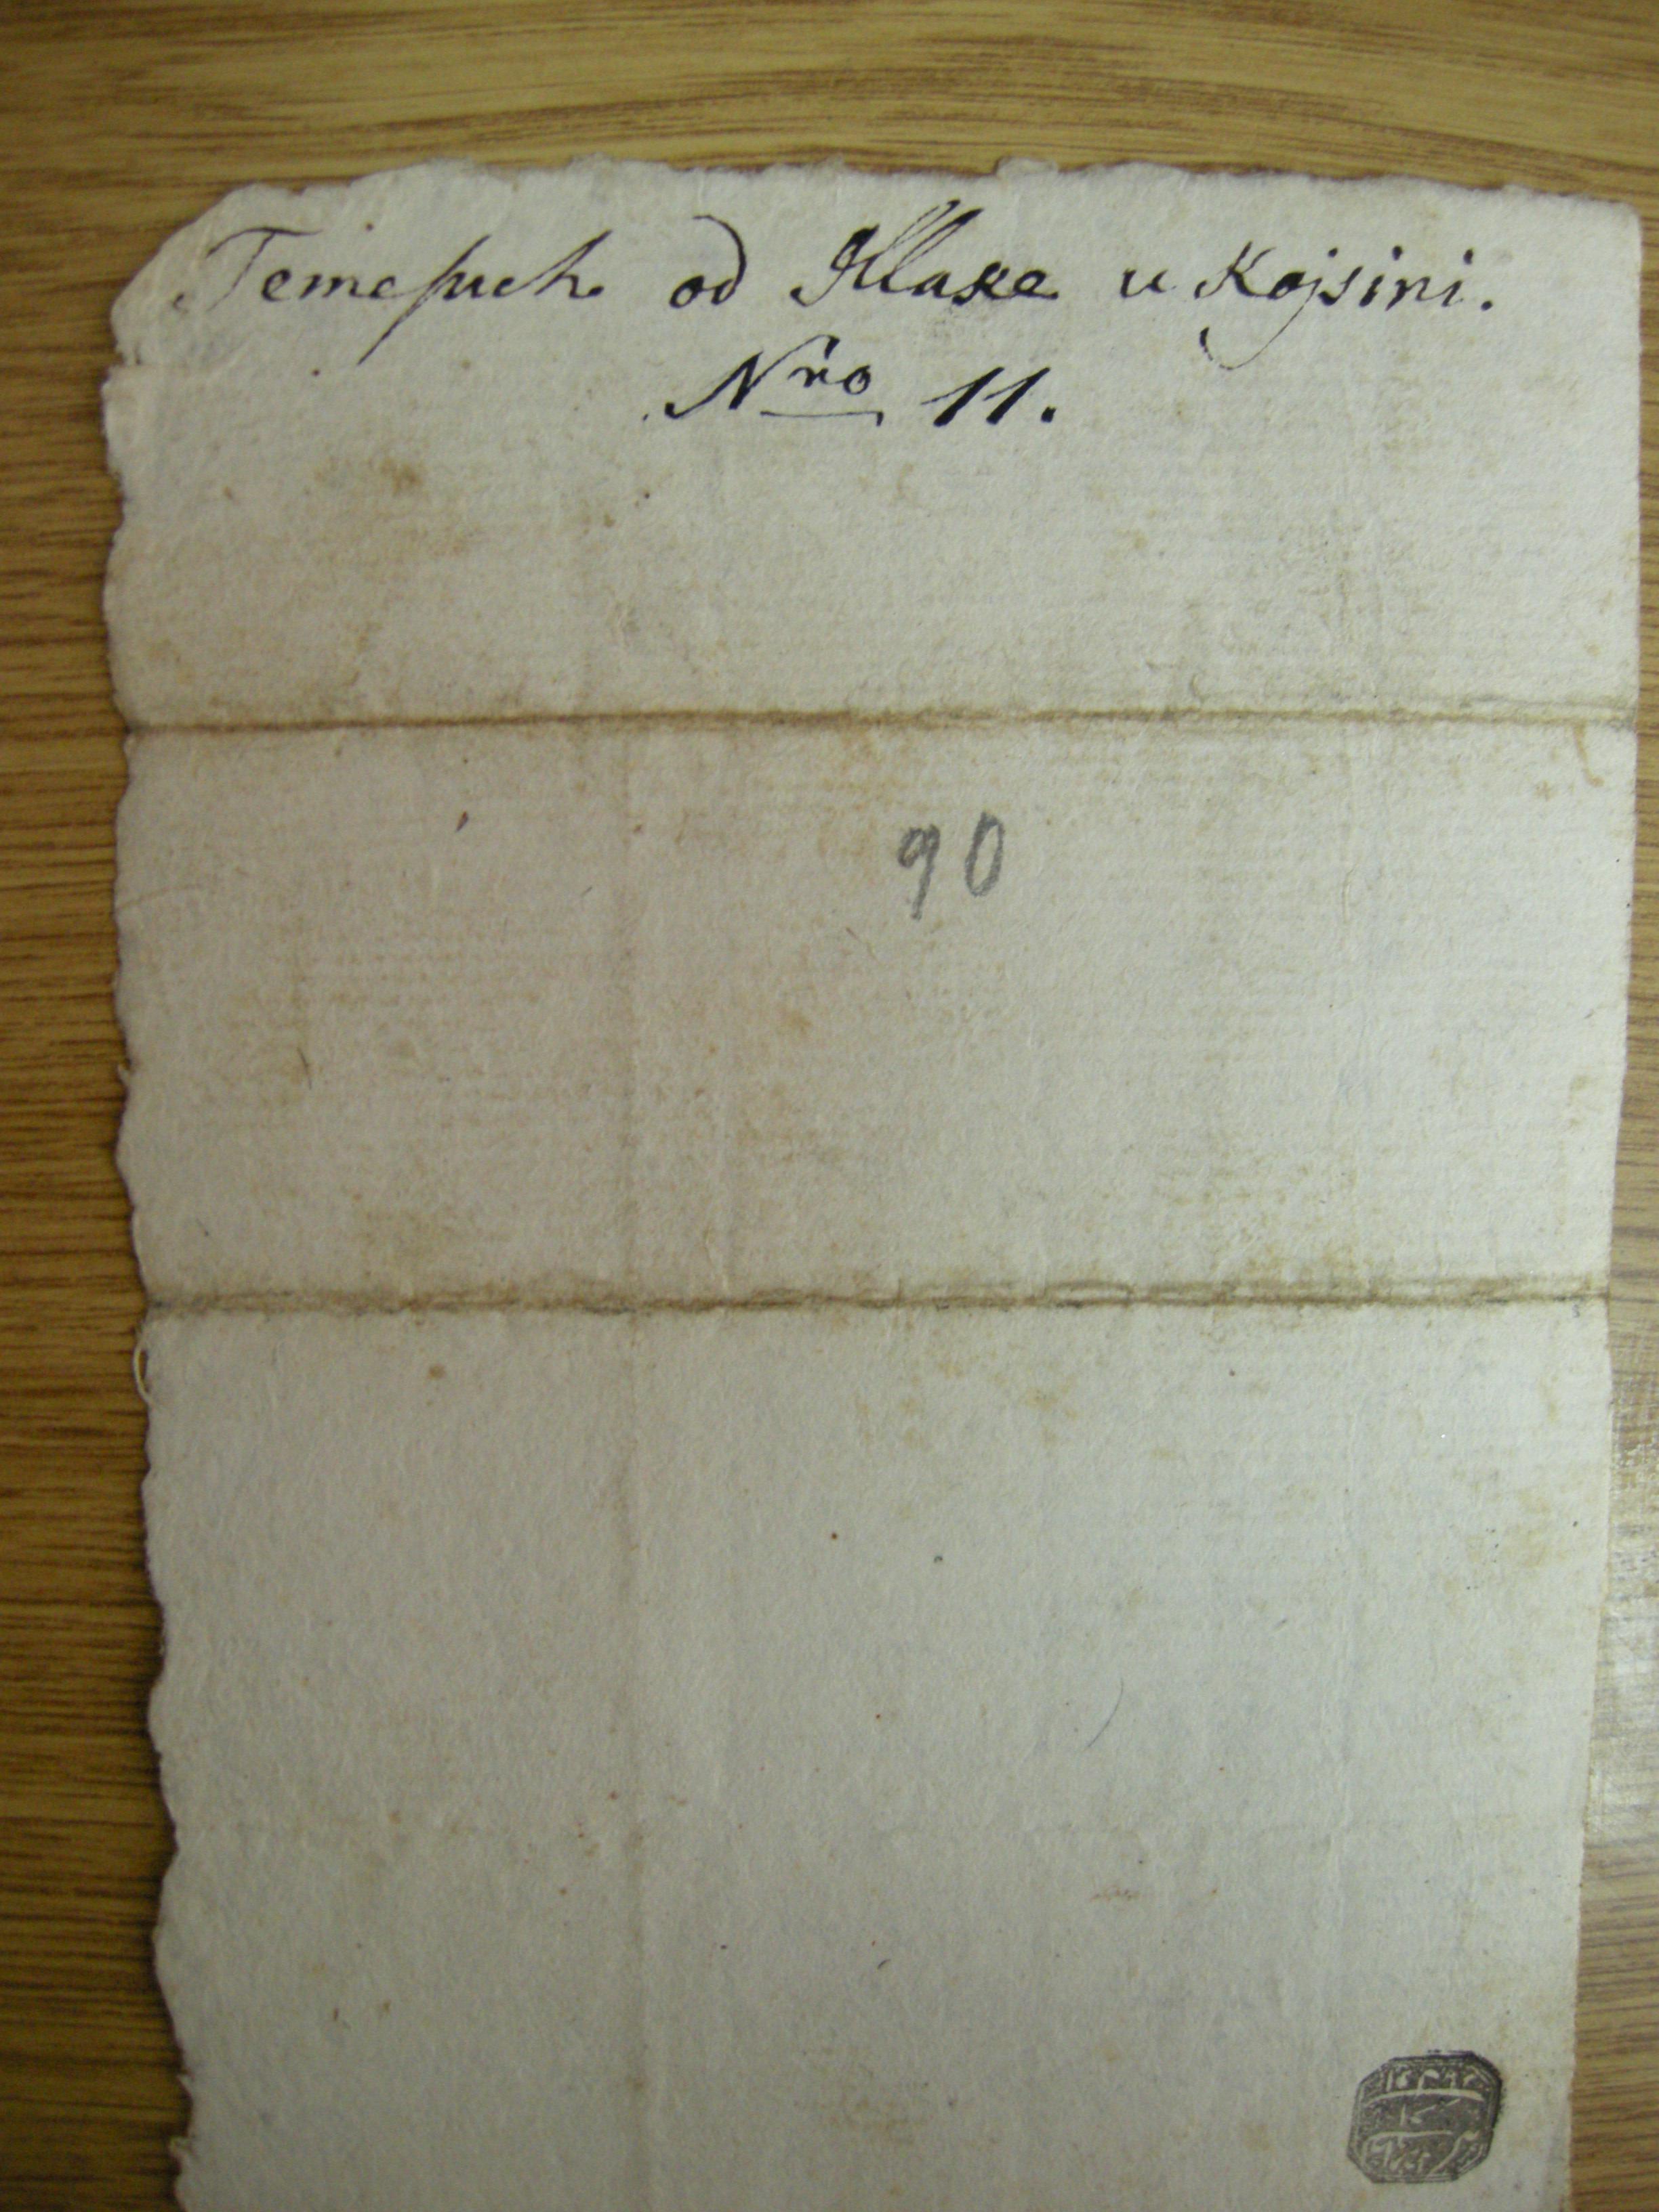 Temessuch od Mlake u Kojsini.
Nro 11.
90